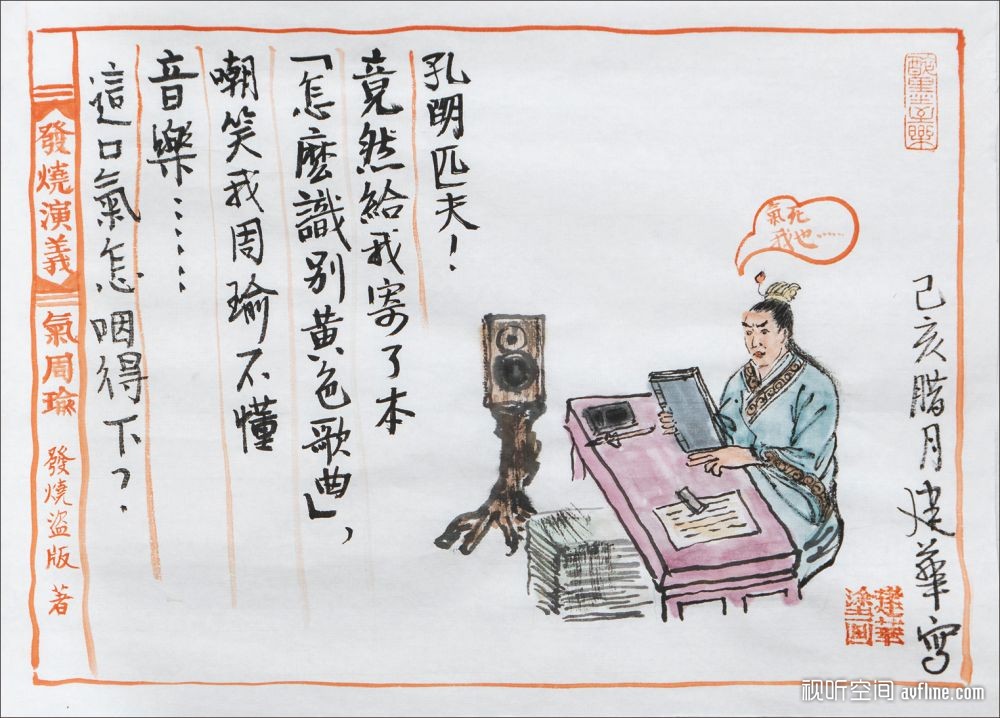 己亥腊月建華寫
建華
氣死
我也……
孔明匹夫！
竟然給我寄了本
「怎麽識別黃色歌曲」，
嘲笑我周瑜不懂
音樂……
這口氣怎咽得下？
發燒演義
氣周瑜
發燒盜版 著
视听空间 avfline.com